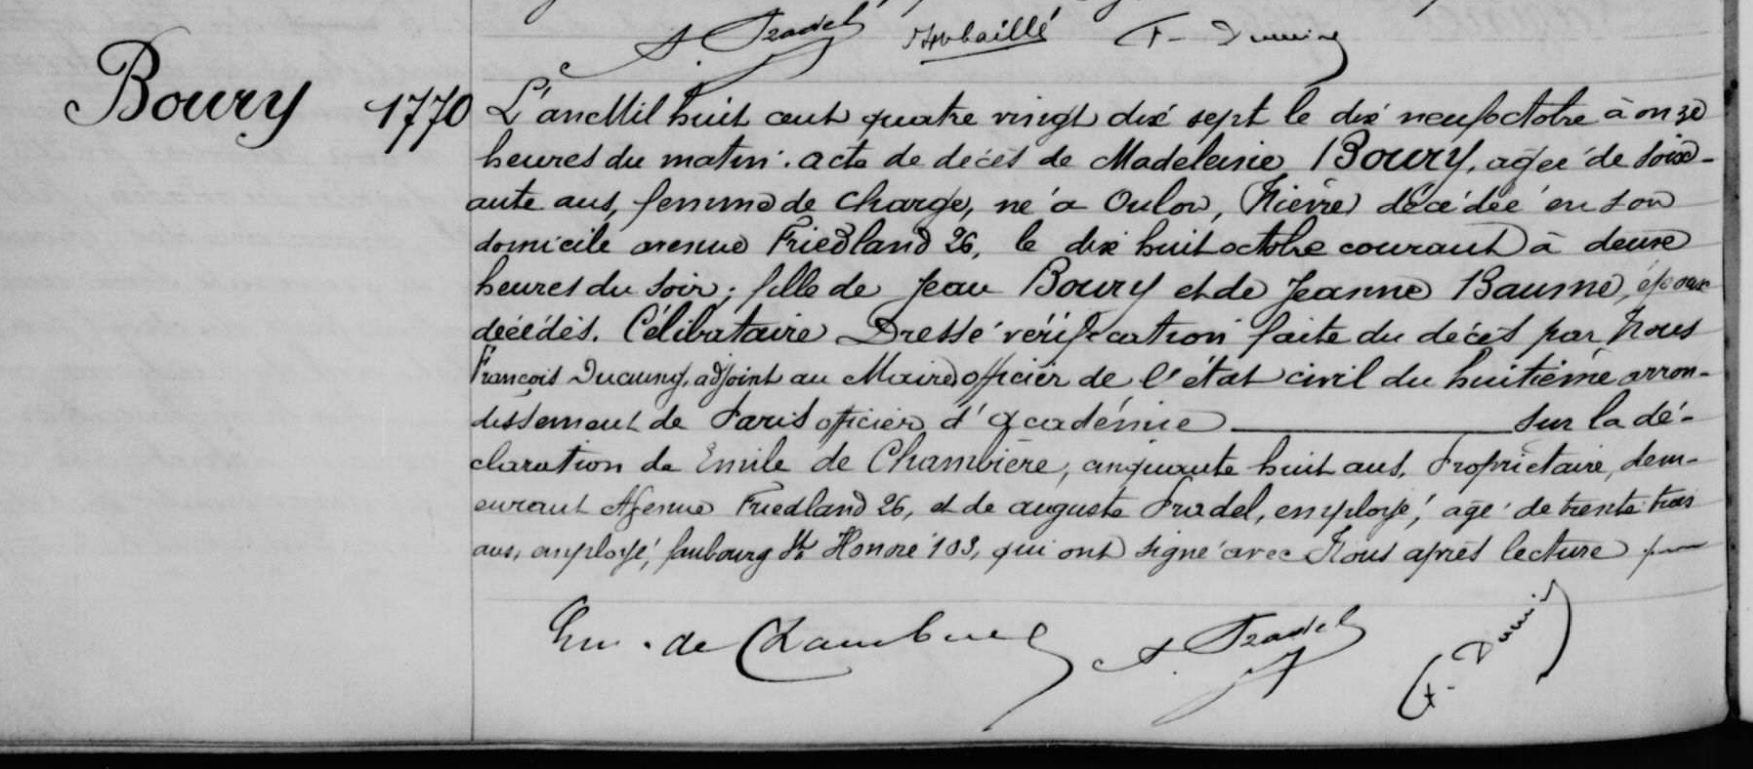 A. Pradel Hubaillé F-
Boury 1770 L'an Mil huit cent quatre vingt dix sept le dix neuf octobre à onze
heures du matin. acte de décès de Madeleine Boury, agée de soix-
ante ans, femme de charge, né à Oulon, (Nièvre) décédée en son
domicile avenue Friedland 26, le dix huit octobre courant à deux
heures du soir; fille de Jean Boury et de Jeanne Baume, époux
décédés. Célibataire Dressé vérification faite du décès par Nous
François Ducuing, adjoint au Maire officier de l'état civil du huitième arron-
dissement de Paris officier d'Académie ______ sur la dé-
claration de Emile de Chambière, cinquante huit ans, Propriétaire, dem-
eurant Avenue Friedland 26, et de auguste Pradel, employé, agé de trente trois
ans, employé, faubourg St Honoré 103, qui ont signé avec Nous après lecture
Em. de A. Pradel F-